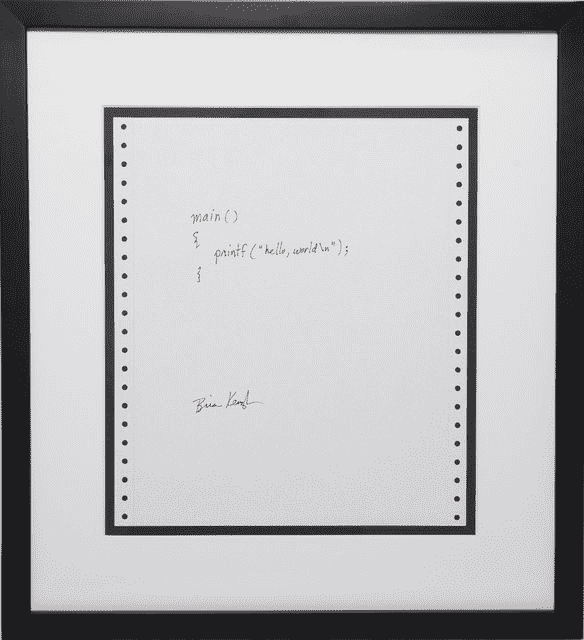 main()
{
printf("hello, world\n");
}
Brian Kernigh